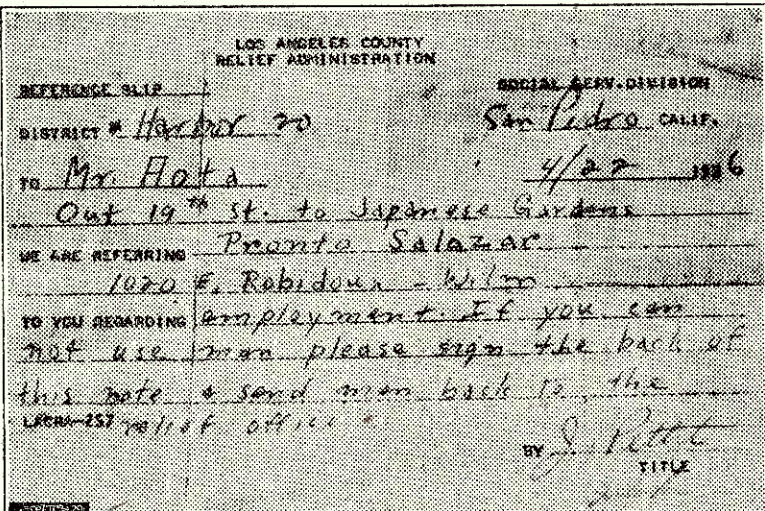 LOS ANGELES COUNTY
RELIEF ADMINISTRATION
REFERENCE SLIP
SOCIAL SERV. DIVISION
DISTRICT # Harbor 20
San Pedro CALIF.
TO Mr. Hota
4/22 1936
Out 19th St. to Japanese Gardens
WE ARE REFERRING Pronto Salazar
1020 E. Robidoux - Wilm
TO YOU REGARDING employment. If you can
not use man please sign the back of
this note & send man back to the
LACRA-257 relief office.
BY
TITLE